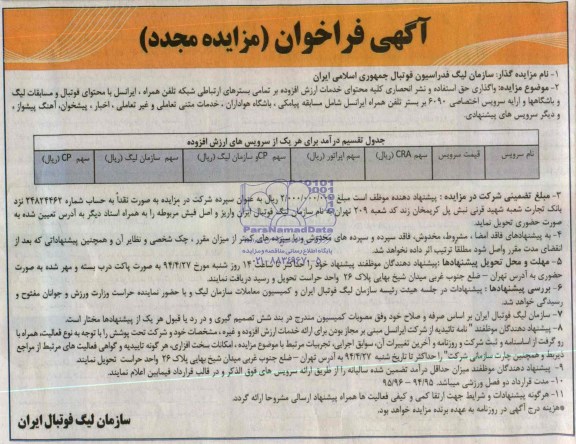 آگهی فراخوان (مزایده مجدد)
۱- نام مزایده گذار: سازمان لیگ فدراسیون فوتبال جمهوری اسلامی ایران
۲- موضوع مزایده: واگذاری حق استفاده و نشر انحصاری کلیه محتوای خدمات ارزش افزوده بر تمامی بسترهای ارتباطی شبکه تلفن همراه ، ایرانسل با محتوای فوتبال و مسابقات لیگ
و باشگاهها و ارایه سرویس اختصاصی ۶۰۹۰ بر بستر تلفن همراه ایرانسل شامل مسابقه پیامکی ، باشگاه هواداران ، خدمات متنی تعاملی و غیر تعاملی ، اخبار ، پیشخوان، آهنگ پیشواز ،
و دیگر سرویس های پیشنهادی.
جدول تقسیم درآمد برای هر یک از سرویس های ارزش افزوده
نام سرویس قیمت سرویس سهم CRA (ریال) سهم اپراتور (ریال) سهم CPو سازمان لیگ (ریال) سهم سازمان لیگ (ریال) سهم CP (ریال)
۳- مبلغ تضمینی شرکت در مزایده : پیشنهاد دهنده موظف است مبلغ ۲/۰۰۰/۰۰۰/۰۰۰ ریال به عنوان سپرده شرکت در مزایده به صورت نقداً به حساب شماره ۲۴۸۲۴۴۶۲ نزد
بانک تجارت شعبه شهید قرنی نبش پل کریمخان زند کد شعبه ۲۰۹ تهران به نام سازمان لیگ فوتبال ایران واریز و اصل فیش مربوطه را به همراه اسناد دیگر به آدرس تعیین شده به
صورت حضوری تحویل نماید.
۴- به پیشنهادهای فاقد امضا ، مشروط، مخدوش، فاقد سپرده و سپرده های مخدوش و یا سپرده های کمتر از میزان مقرر ، چک شخصی و نظایر آن و همچنین پیشنهاداتی که بعد از
انقضای مدت مقرر واصل شود مطلقا ترتیب اثر داده نخواهد شد.
۵- مهلت و محل تحویل پیشنهادها: پیشنهاد دهندگان موظفند پیشنهاد خود را حداکثر تا ساعت ۱۴ روز شنبه مورخ ۹۴/۴/۲۷ به صورت پاکت درب بسته و مهر شده به صورت
حضوری به آدرس تهران – ضلع جنوب غربی میدان شیخ بهایی پلاک ۲۶ واحد حراست تحویل و رسید دریافت نمایند.
۶- بررسی پیشنهادها : پیشنهادات در جلسه هیئت رئیسه سازمان لیگ فوتبال ایران و کمیسیون معاملات سازمان لیگ و با حضور نماینده حراست وزارت ورزش و جوانان مفتوح و
رسیدگی خواهد شد.
۷- سازمان لیگ فوتبال ایران بر اساس صرفه و صلاح خود وفق مصوبات کمیسیون مندرج در بند شش تصمیم گیری و در رد یا قبول هر یک از پیشنهادها مختار است.
۸- پیشنهاد دهندگان موظفند " نامه تائیدیه از شرکت ایرانسل مبنی بر مجاز بودن برای ارائه خدمات ارزش افزوده و غیره ، مشخصات خود و شرکت تحت پوشش را با توجه به نوع فعالیت، همراه با
رو گرفت از اساسنامه و ثبت شرکت و روزنامه و آخرین تغییرات آن، سوابق اجرایی، تجربیات مرتبط با موضوع مزایده ، امکانات سخت افزاری، هر گونه تاییدیه و گواهی فعالیت های مرتبط از مراجع
ذیربط و همچنین چارت سازمانی شرکت" را حداکثر تا تاریخ شنبه ۹۴/۴/۲۷ به آدرس تهران – ضلع جنوب غربی میدان شیخ بهایی پلاک ۲۶ واحد حراست تحویل نمایند.
۹- پیشنهاد دهندگان موظفند میزان حداقل درآمد تضمین شده سالیانه را از طریق ارائه سرویس های فوق الذکر و در قالب قرارداد فیمابین اعلام نمایند.
۱۰- مدت قرارداد دو فصل ورزشی میباشد. ۹۴/۹۵ – ۹۵/۹۶
۱۱- هرگونه پیشنهادات و شرایط جهت ارتقا کمی و کیفی فعالیت ها همراه پیشنهاد ارسالی مشروحا ارائه گردد.
*هزینه درج آگهی در روزنامه به عهده برنده مزایده خواهد بود.
سازمان لیگ فوتبال ایران
ParsNamadData